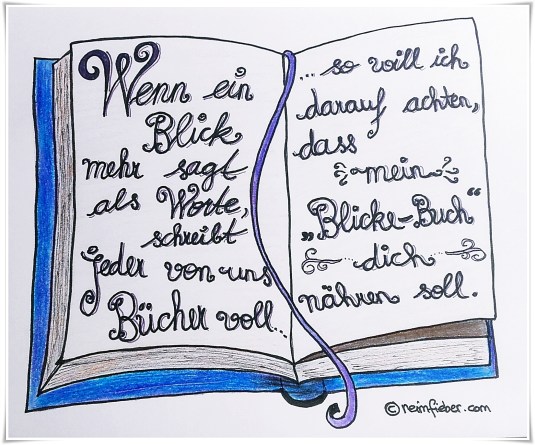 Wenn ein
Blick
mehr sagt
als Worte,
schreibt
jeder von uns
Bücher voll...
... so will ich
darauf achten,
dass
mein
„Blicke-Buch“
dich
nähren soll.
© reimfieber.com